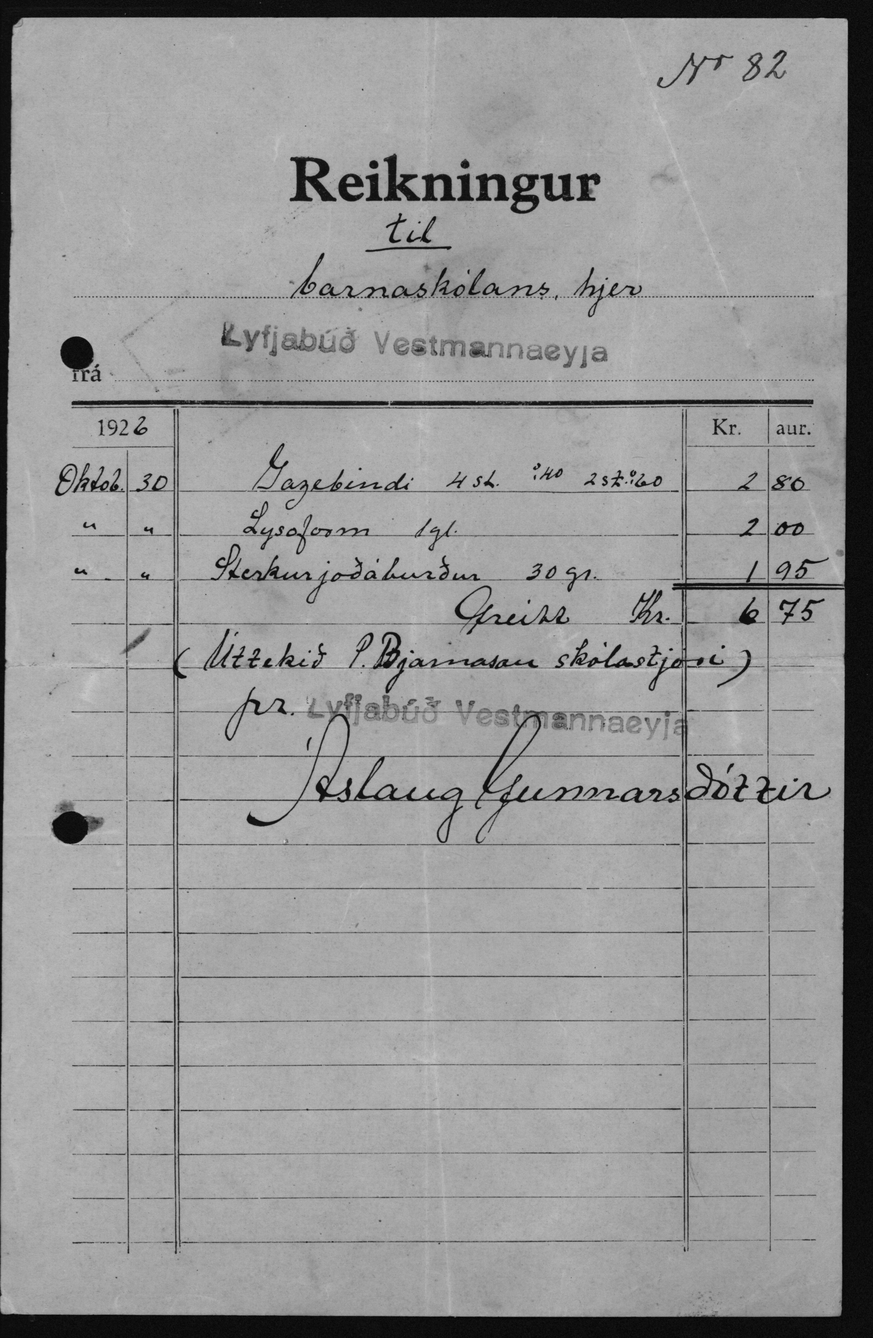 No 82
Reikningur
til
barnaskólans, hjer
Lyfjabúð Vestmannaeyja
frá
1926 Kr. aur.
Oktob. 30 Gazebindi 4 st. à 40 2 st. à 60 2 80
" " Lysoform 1 gl. 2 00
" " Sterkur joðáburður 30 gr. 1 95
Greitt Kr. 6 75
( Úttekið P. Bjarnason skólastjóri )
pr. Lyfjabúð Vestmannaeyja
Áslaug Gunnarsdóttir